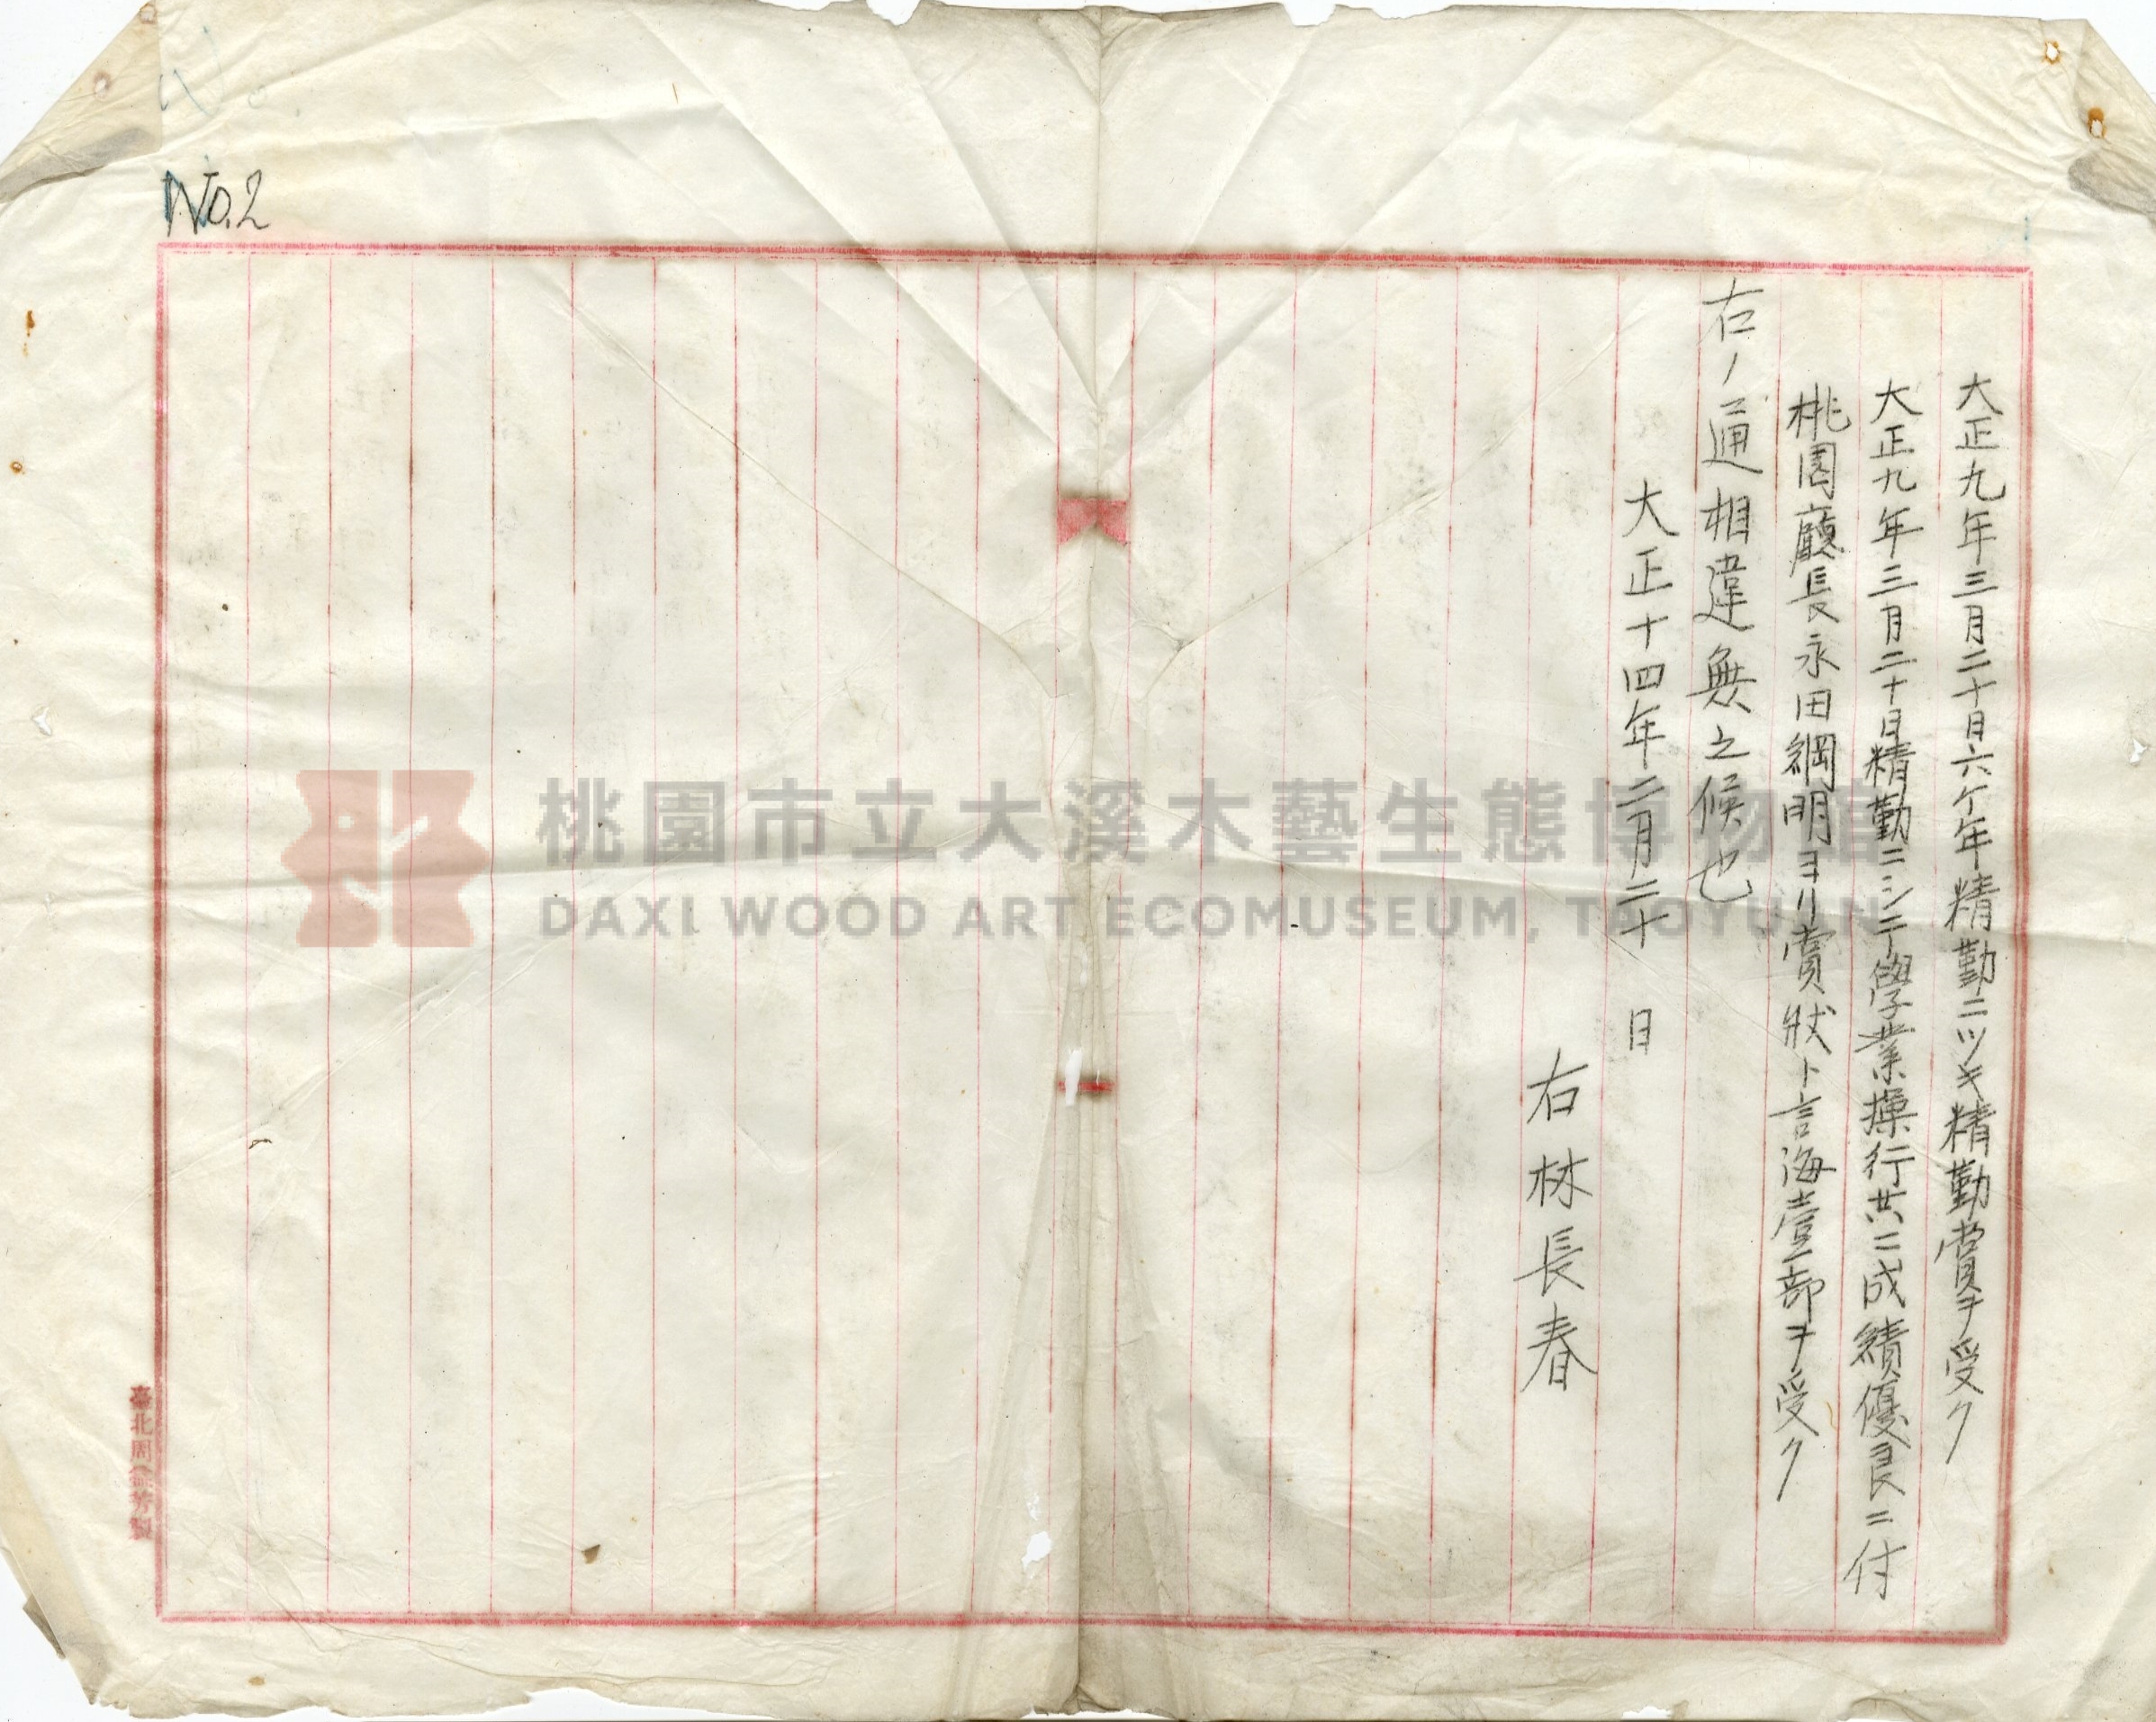 No.2
大正九年三月二十日六ケ年精勤ニツキ精勤賞ヲ受ク
大正九年三月二十日精勤ニシテ學業操行共ニ成績優良ニ付
桃園廳長永田綱明ヨリ賞狀ト言海壹部ヲ受ク
右ノ通相違無之候也
大正十四年二月二十 日
右林長春
桃園市立大溪木藝生態博物館
DAXI WOOD ART ECOMUSEUM, TAOYUAN
臺北周 芳製